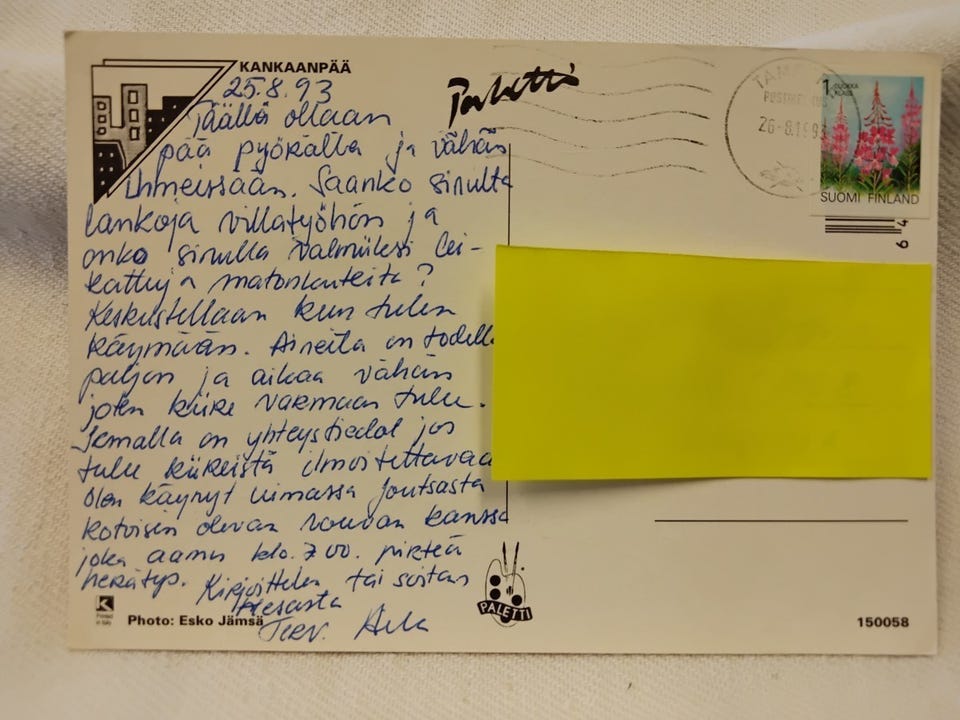 KANKAANPÄÄ
25.8.93
Täällä ollaan
pää pyörällä ja vähän
ihmeissään. Saanko sinulta
lankoja villatyöhön ja
onko sinulla valmiiksi lei-
kattuja matonkuteita?
Keskustellaan kun tulen
käymään. Aineita on todella
paljon ja aikaa vähän
joten kiire varmaan tulee.
Jemalla on yhteystiedot jos
tulee kiireistä ilmoitettavaa
Olen käynyt uimassa Joutsasta
kotoisin olevan rouvan kanssa
joka aamu klo. 7.00. pirteä
herätys. Kirjoittelen tai soitan
Terv.
Photo: Esko Jämsä
Printed
in Italy
Paletti
1 LUOKKA
KLASS
SUOMI FINLAND
26-8.1993
PALETTI
150058